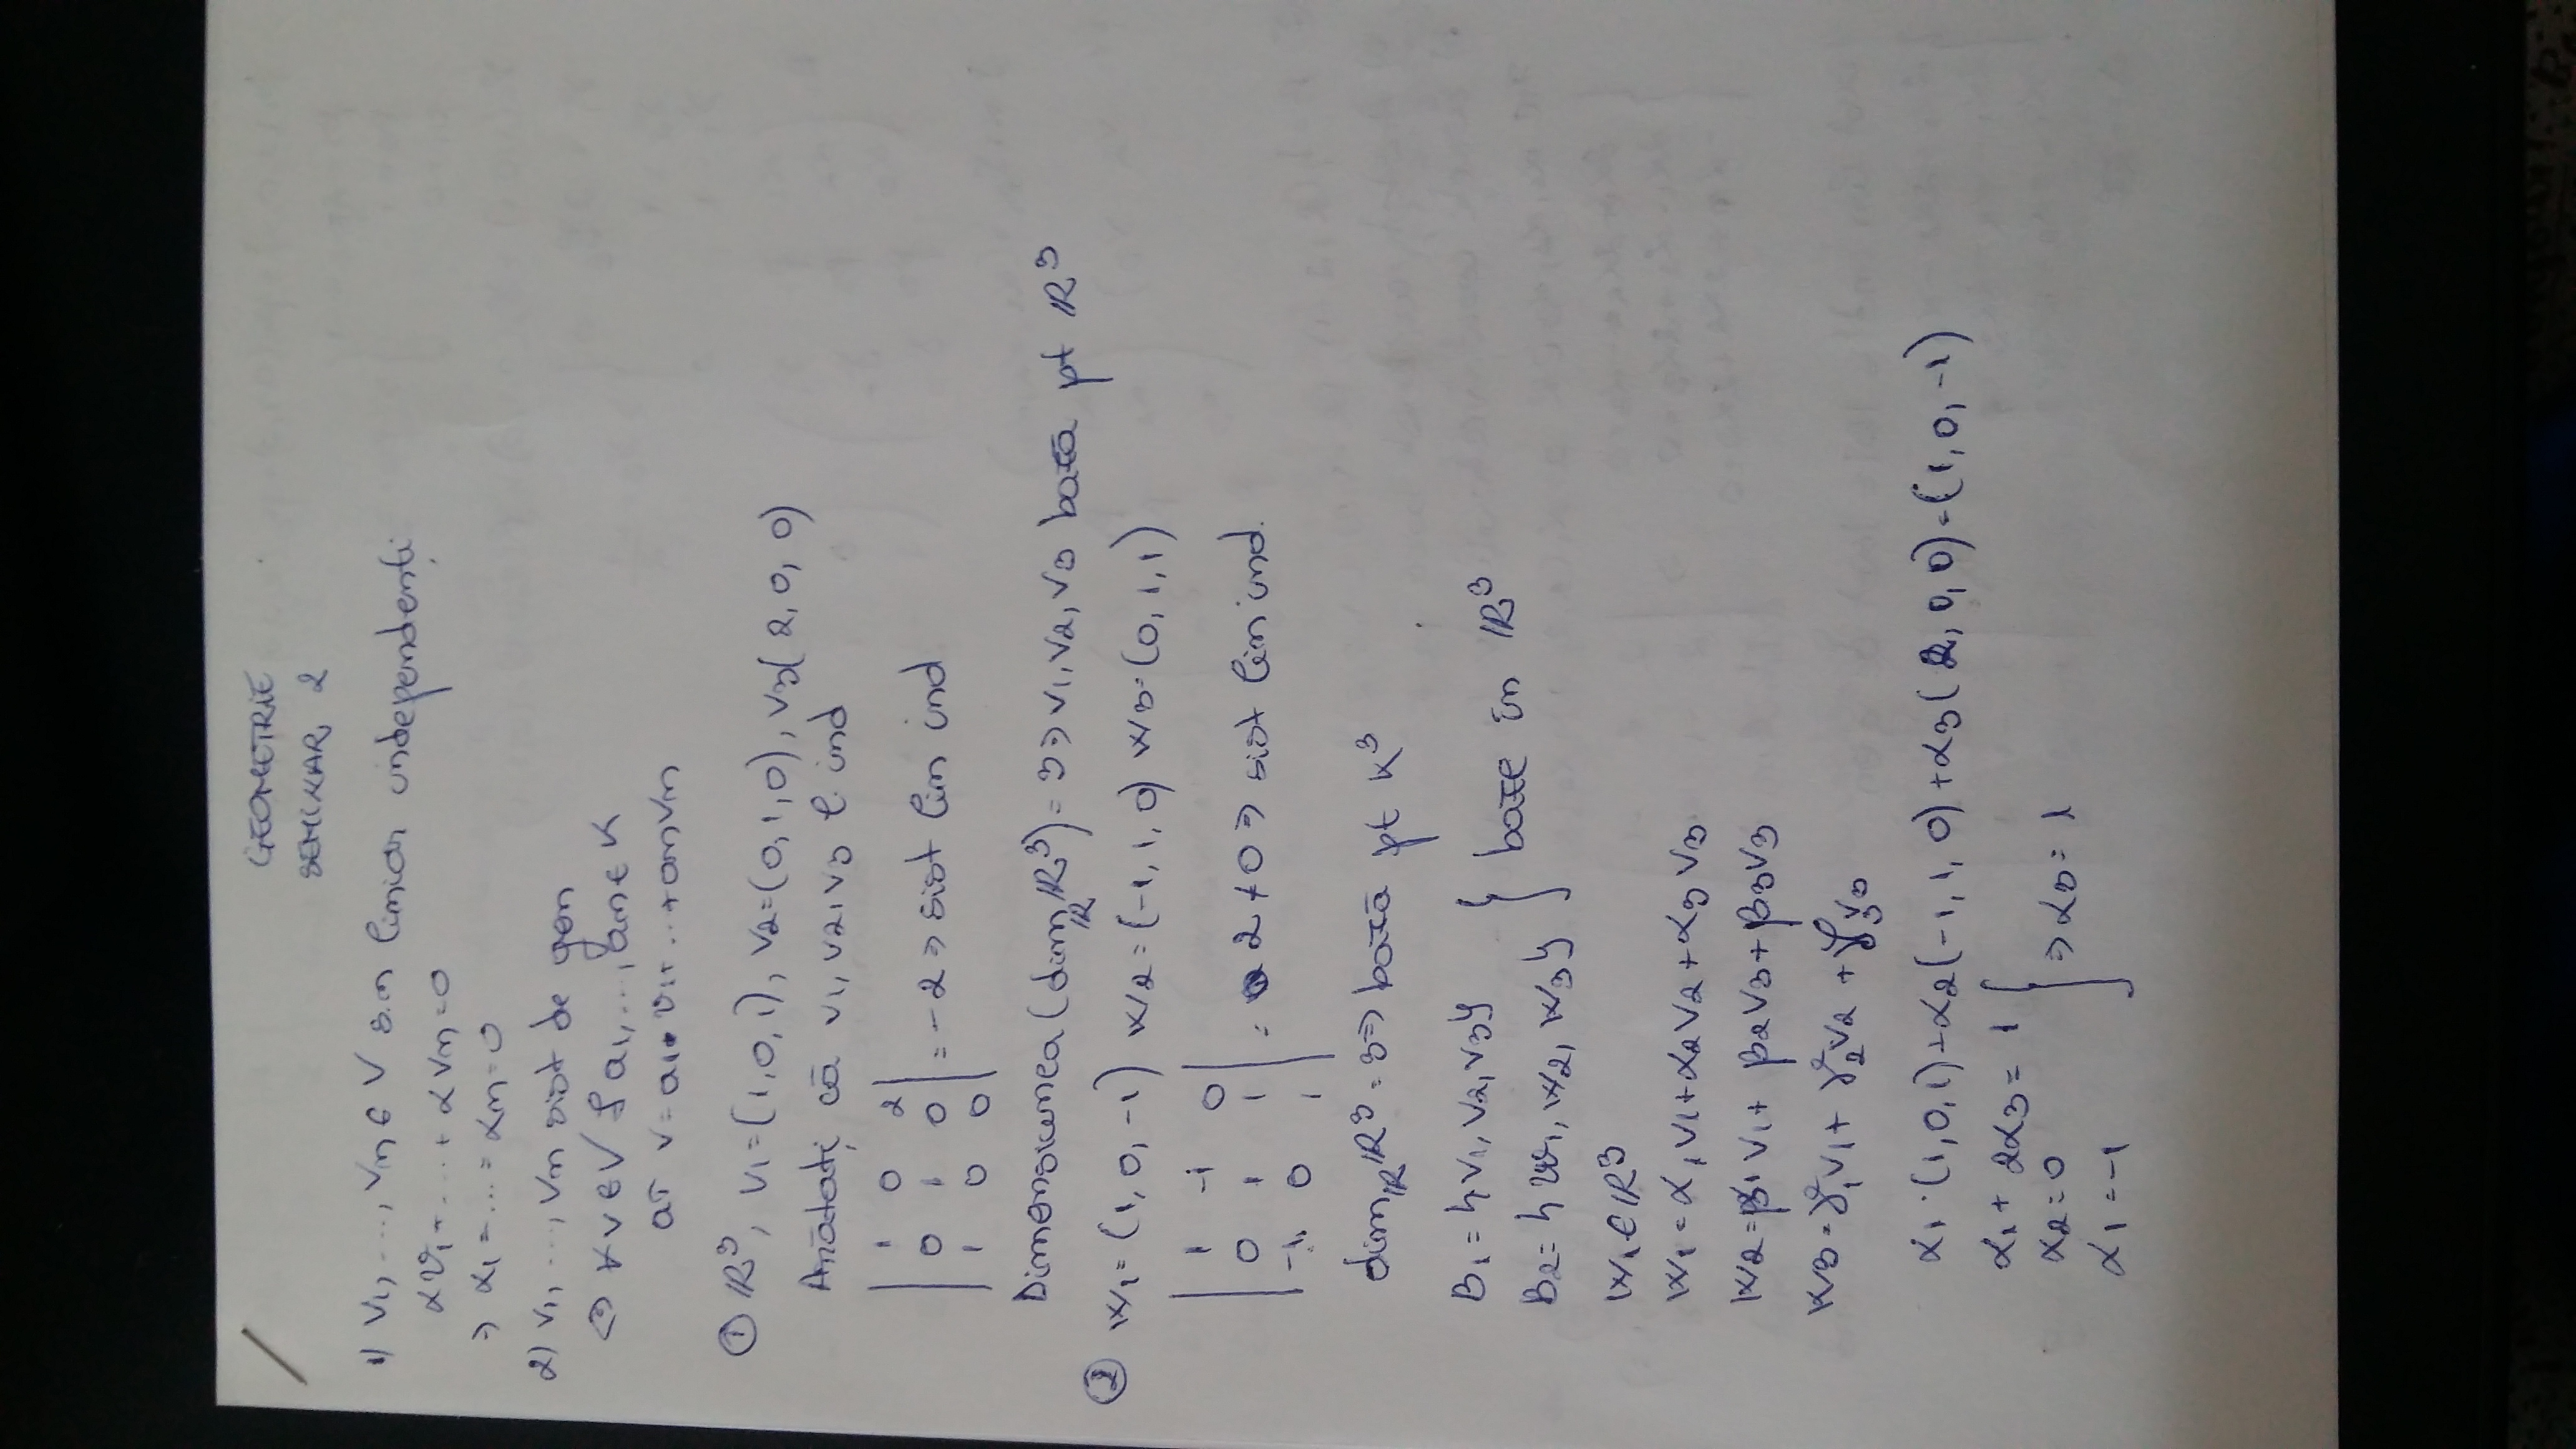 GEOMETRIE
SEMINAR 2
1) V1, ..., Vn ∈ V s.n liniar independenți
αv1 + ... + αVn = 0
⇒ α1 = ... = αn = 0
2) V1, ..., Vn sist de gen
⇔ ∀ v ∈ V ∃ a1, ..., an ∈ K
aî v = a1 • v1 + ... + anvn
① ℝ³, V1 = (1, 0, 1), V2 = (0, 1, 0), V3 ( 2, 0, 0)
Arătați că v1, v2, v3 l. ind
| 1 0 2 |
| 0 1 0 | = -2 ⇒ sist lin ind
| 1 0 0 |
Dimensiunea (dimℝ ℝ³) = 3 ⇒ v1, v2, v3 bază pt ℝ³
② W1 = (1, 0, -1) W2 = (-1, 1, 0) W3 = (0, 1, 1)
| 1 -1 0 |
| 0 1 1 | = 2 ≠ 0 ⇒ sist lin ind.
| -1 0 1 |
dimℝ ℝ³ = 3 ⇒ bază pt K³
B1 = {v1, v2, v3}
B2 = {w1, w2, w3} } baze în ℝ³
W1 ∈ ℝ³
W1 = α1v1 + α2v2 + α3v3
W2 = β1 v1 + β2v3 + β3v3
W3 = γ1v1 + γ2v2 + γ3v3
α1 · (1, 0, 1) + α2 (-1, 1, 0) + α3 ( 2, 0, 0) = (1, 0, -1)
α1 + 2α3 = 1
α2 = 0 } ⇒ α3 = 1
α1 = -1